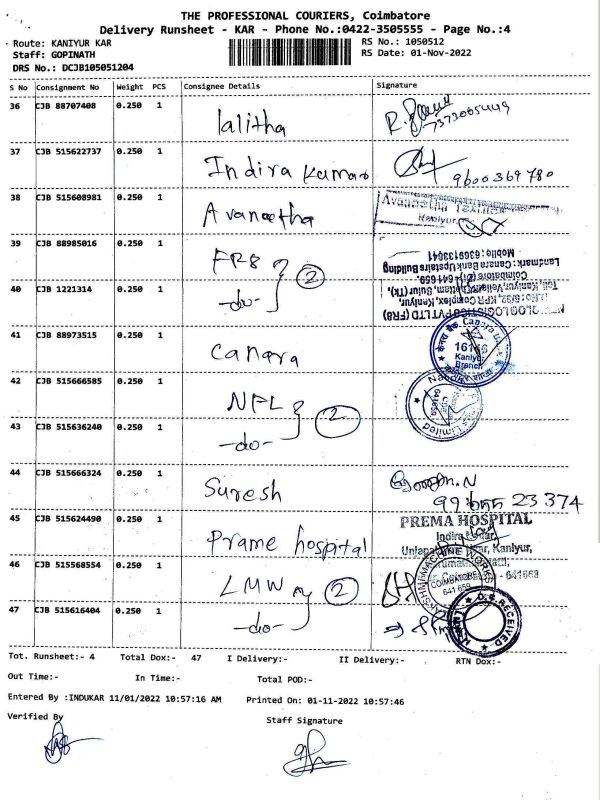 THE PROFESSIONAL COURIERS, Coimbatore
Delivery Runsheet - KAR - Phone No.:0422-3505555 - Page No.:4
Route: KANIYUR KAR
RS No.: 1050512
Staff: GOPINATH
RS Date: 01-Nov-2022
DRS No.: DCJB105051204
S No Consignment No Weight PCS Consignee Details Signature
36 CJB 88707408 0.250 1 lalitha
37 CJB 515622737 0.250 1 Indira Kumar 9600369780
38 CJB 515608981 0.250 1 Avaneetha
39 CJB 88985016 0.250 1 FR8
40 CJB 1221314 0.250 1 -do- 2
Mobile: 6369133641
Landmark: Canara Bank Upstairs Building
Coimbatore (Dt)-641 659.
41 CJB 88973515 0.250 1 Canara
Canara
Kaniyur
Branch
42 CJB 515666585 0.250 1 NPL
43 CJB 515636240 0.250 1 -do- 2
Limited
44 CJB 515666324 0.250 1 Suresh
23 374
45 CJB 515624490 0.250 1 Prame hospital
PREMA HOSPITAL
Kaniyur,
- 641668
46 CJB 515568554 0.250 1 LMW
COIMBATORE
641 659
47 CJB 515616404 0.250 1 -do- 2
RECEIVED
Tot. Runsheet:- 4 Total Dox:- 47 I Delivery:- II Delivery:- RTN Dox:-
Out Time:- In Time:- Total POD:-
Entered By :INDUKAR 11/01/2022 10:57:16 AM Printed On: 01-11-2022 10:57:46
Verified By Staff Signature